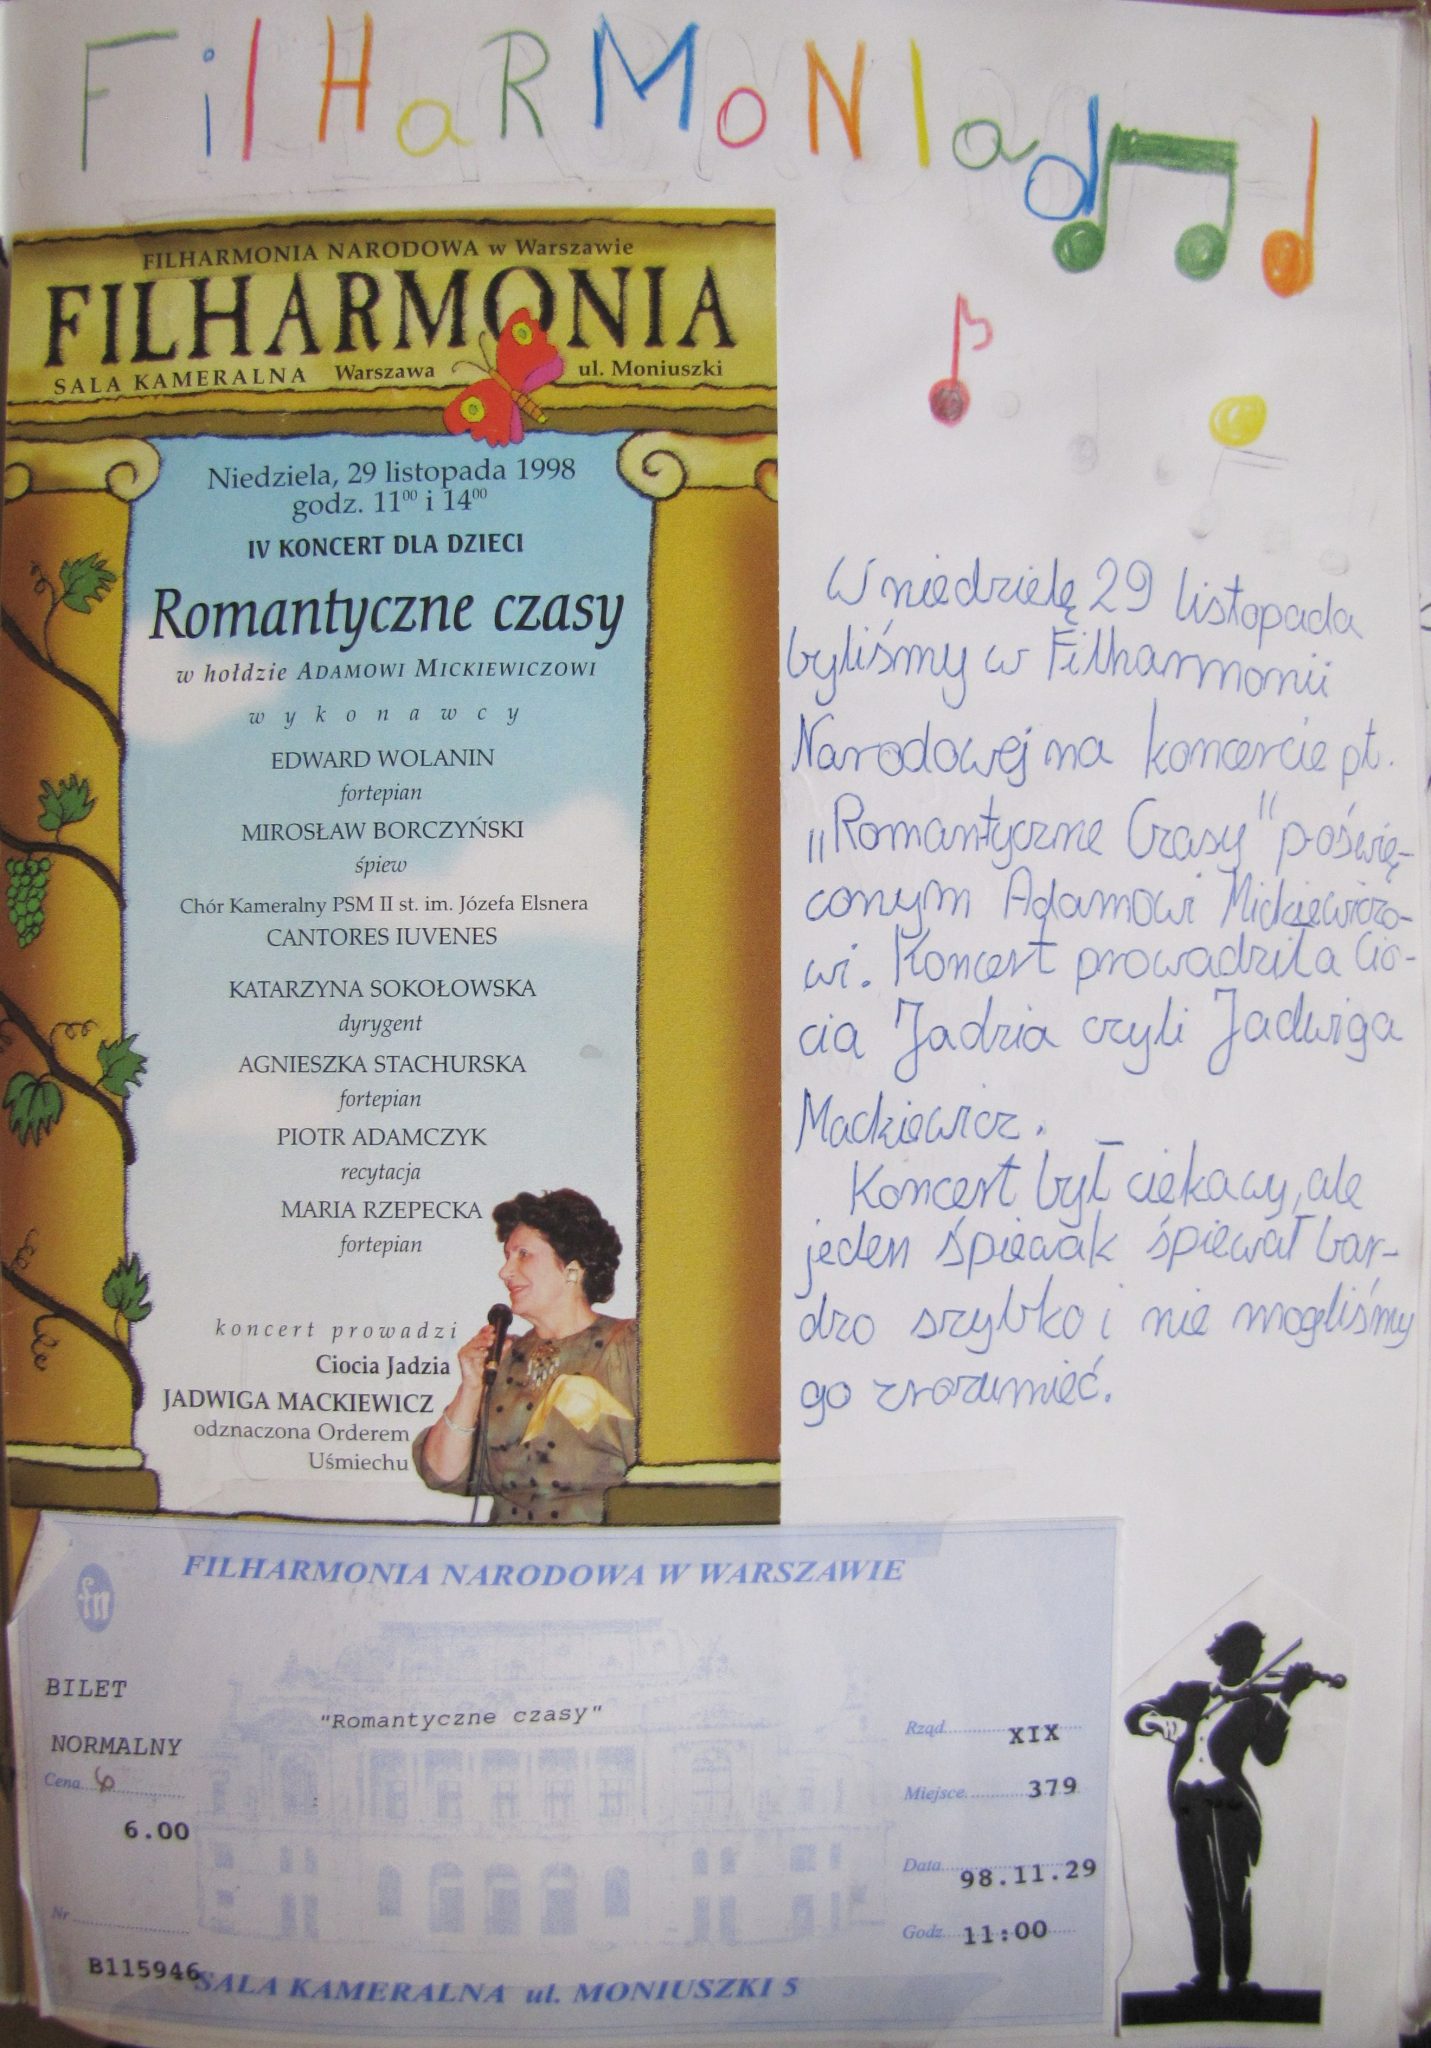 FilHaRMoNIa
FILHARMONIA NARODOWA w Warszawie
FILHARMONIA
SALA KAMERALNA Warszawa ul. Moniuszki
Niedziela, 29 listopada 1998
godz. 11⁰⁰ i 14⁰⁰
IV KONCERT DLA DZIECI
Romantyczne czasy
w hołdzie ADAMOWI MICKIEWICZOWI
wykonawcy
EDWARD WOLANIN
fortepian
MIROSŁAW BORCZYŃSKI
śpiew
Chór Kameralny PSM II st. im. Józefa Elsnera
CANTORES IUVENES
KATARZYNA SOKOŁOWSKA
dyrygent
AGNIESZKA STACHURSKA
fortepian
PIOTR ADAMCZYK
recytacja
MARIA RZEPECKA
fortepian
koncert prowadzi
Ciocia Jadzia
JADWIGA MACKIEWICZ
odznaczona Orderem
Uśmiechu
W niedzielę 29 listopada
byliśmy w Filharmonii
Narodowej na koncercie pt.
„Romantyczne Czasy" poświę-
conym Adamowi Mickiewiczo-
wi. Koncert prowadziła Cio-
cia Jadzia czyli Jadwiga
Mackiewicz.
Koncert był ciekawy, ale
jeden śpiewak śpiewał bar-
dzo szybko i nie mogliśmy
go zrozumieć.
FILHARMONIA NARODOWA W WARSZAWIE
fn
BILET
NORMALNY
Cena 6
6.00
Nr
B115946
"Romantyczne czasy"
Rząd XIX
Miejsce 379
Data 98.11.29
Godz. 11:00
SALA KAMERALNA ul. MONIUSZKI 5